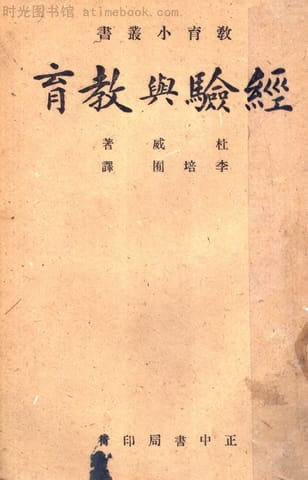 时光图书馆 · atimebook.com
教育小叢書
經驗與教育
杜威著
李培囿譯
正中書局印行